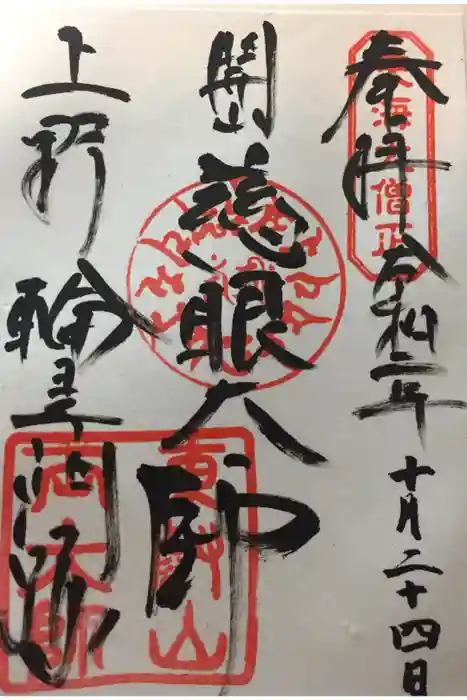 奉拝 令和二年十月二十四日
開山 慈眼大師
上野 輪王寺
天海大僧正
東叡山
両大師